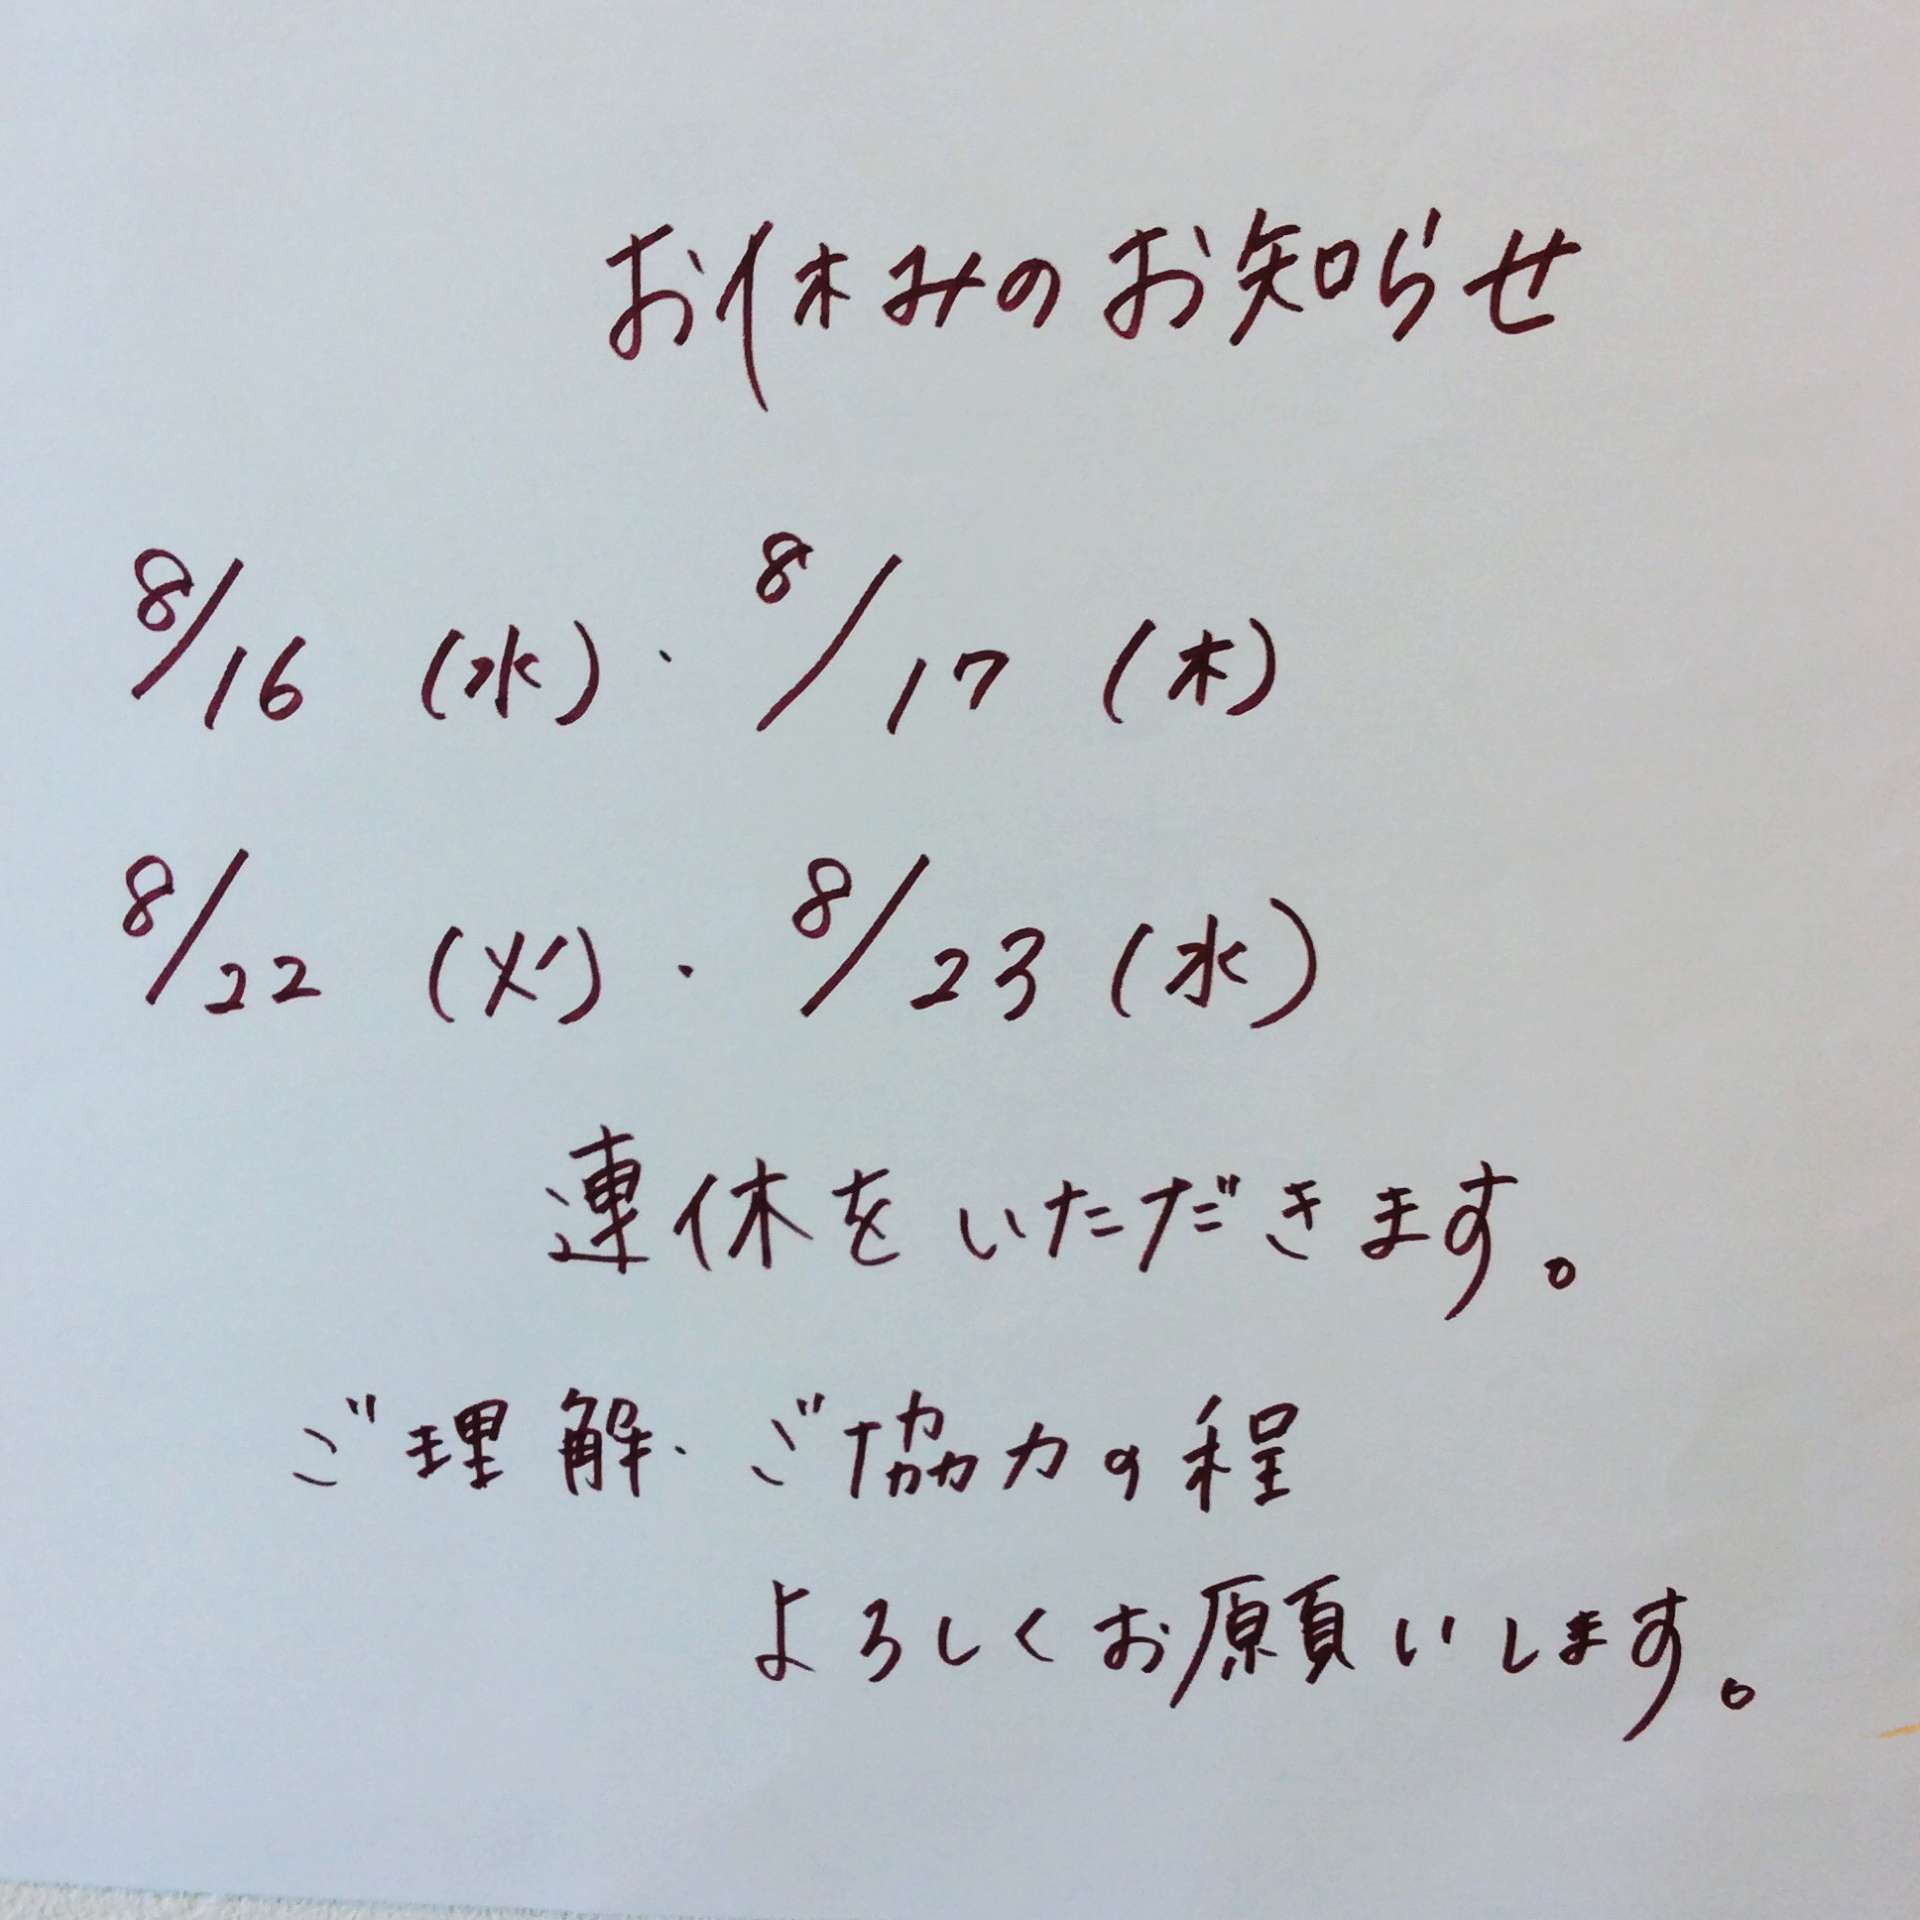 お休みのお知らせ
8/16 (水)・8/17 (木)
8/22 (火)・8/23 (水)
連休をいただきます。
ご理解・ご協力の程
よろしくお願いします。